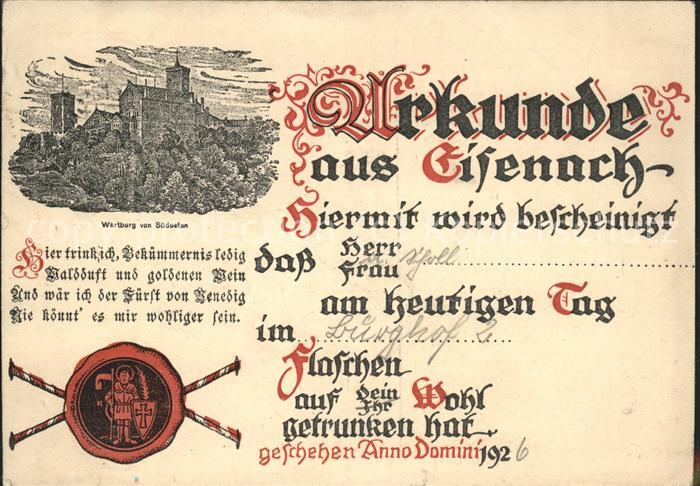 Wartburg von Südosten
Hier trink ich, Bekümmernis ledig
Waldduft und goldenen Wein
Und wär ich der Fürst von Venedig
Nie könnt' es mir wohliger sein.
Urkunde
aus Eisenach
Hiermit wird bescheinigt
daß Herr
Frau
Scholl
am heutigen Tag
im Burghof 2
Flaschen
auf dein
Ihr
Wohl
getrunken hat
geschehen Anno Domini 1926